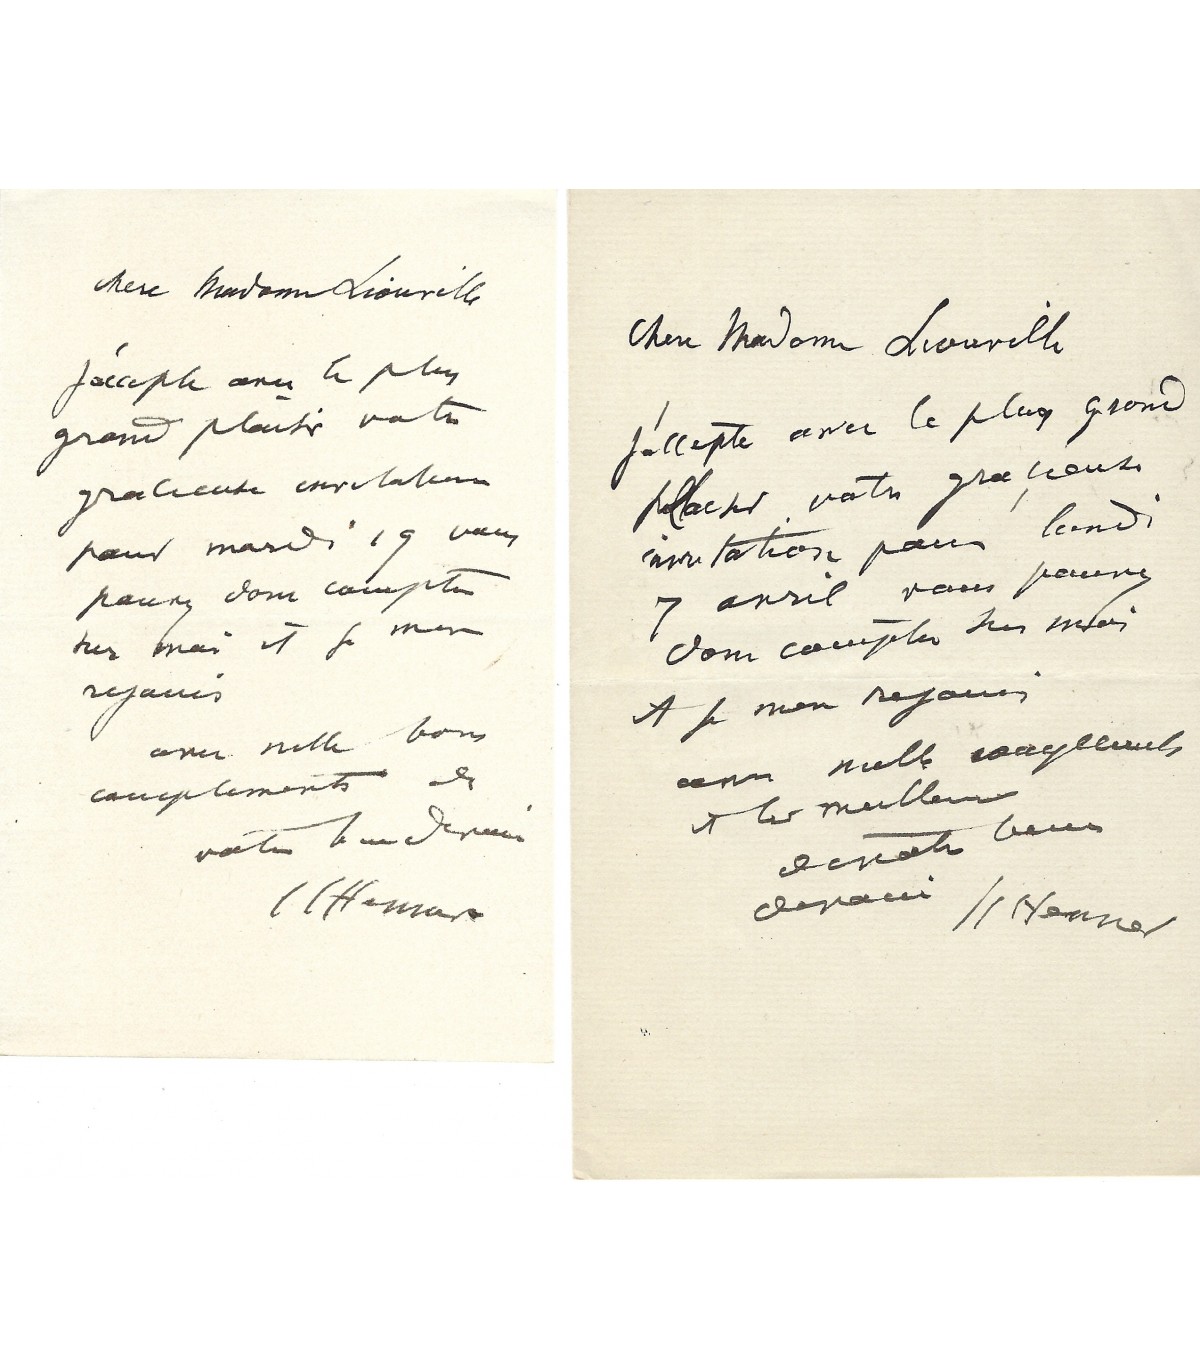 chere Madame Liouville
j'accepte avec le plus
grand plaisir votre
gracieuse invitation
pour mardi 19 vous
pouvez donc compter
sur moi et je m'en
rejouis
avec mille bons
compliments de
votre bien devoué
JJ Henner
chere Madame Liouville
j'accepte avec le plus grand
plaisir votre gracieuse
invitation pour lundi
7 avril vous pouvez
donc compter sur moi
et je m'en rejouis
avec mille compliments
et les meilleurs
de votre bien
devoué JJ Henner